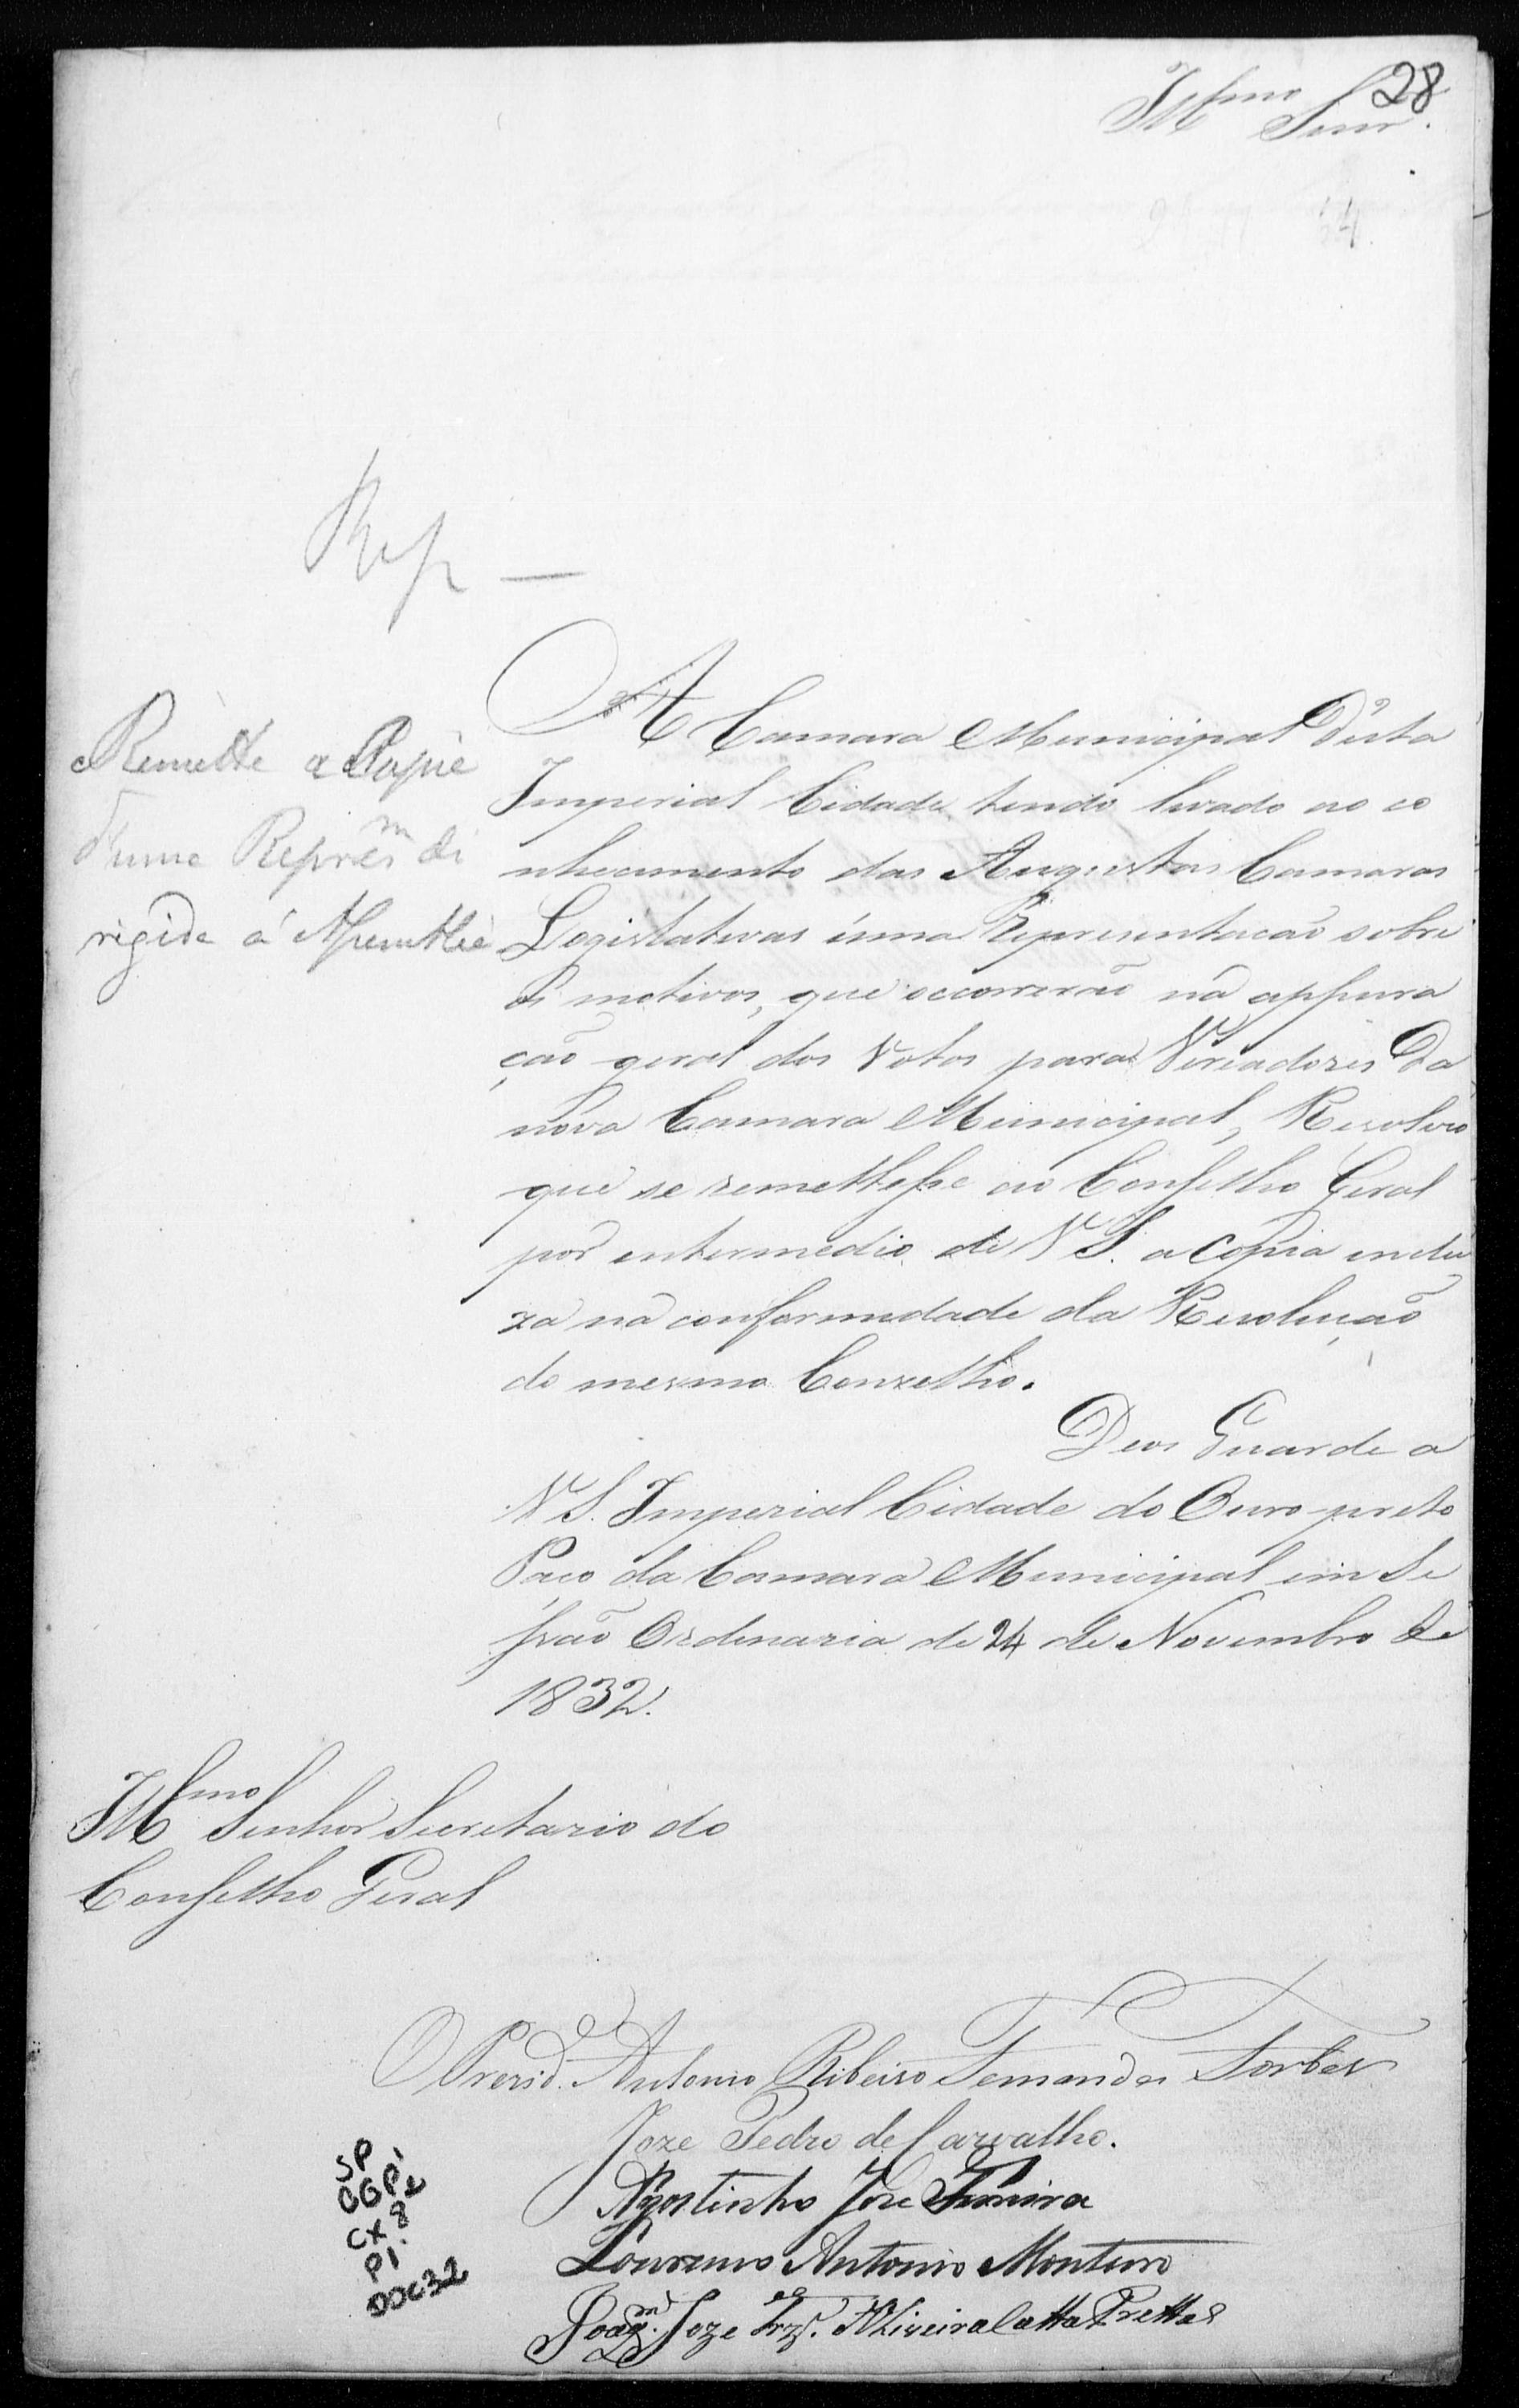 28
Illmo Senr.
Rep —
Remette a Copia
d'uma Represm di
rigida á Assemblea
A Camara Municipal d'esta
Imperial Cidade tendo levado ao co
nhecimento das Augustas Camaras
Legislativas uma Reprezentacaõ sobre
os motivos, que occorreraõ na appura
çaõ geral dos Votos para Vereadores da
nova Camara Municipal, Resolveo
que se remettesse ao Conselho Geral
por entermedio de V S. a Copia inclu
za na conformedade da Resoluçaõ
do mesmo Conzelho.
Deos Guarde a
V S. Imperial Cidade do Ouro preto
Paço da Camara Municipal em Se
ssaõ Ordenaria de 24 de Novembro de
1832.
Illmo Senhor Secretario do
Conselho Geral
O Prezide. Antonio Ribeiro Fernandes Forbes
Joze Pedro de Carvalho.
Agostinho José Ferreira
Lourenço Antonio Monteiro
Joaqm. Joze d'Oliveira Catta Prettas
SP
CGP1
CX 8
P1
DOC 32